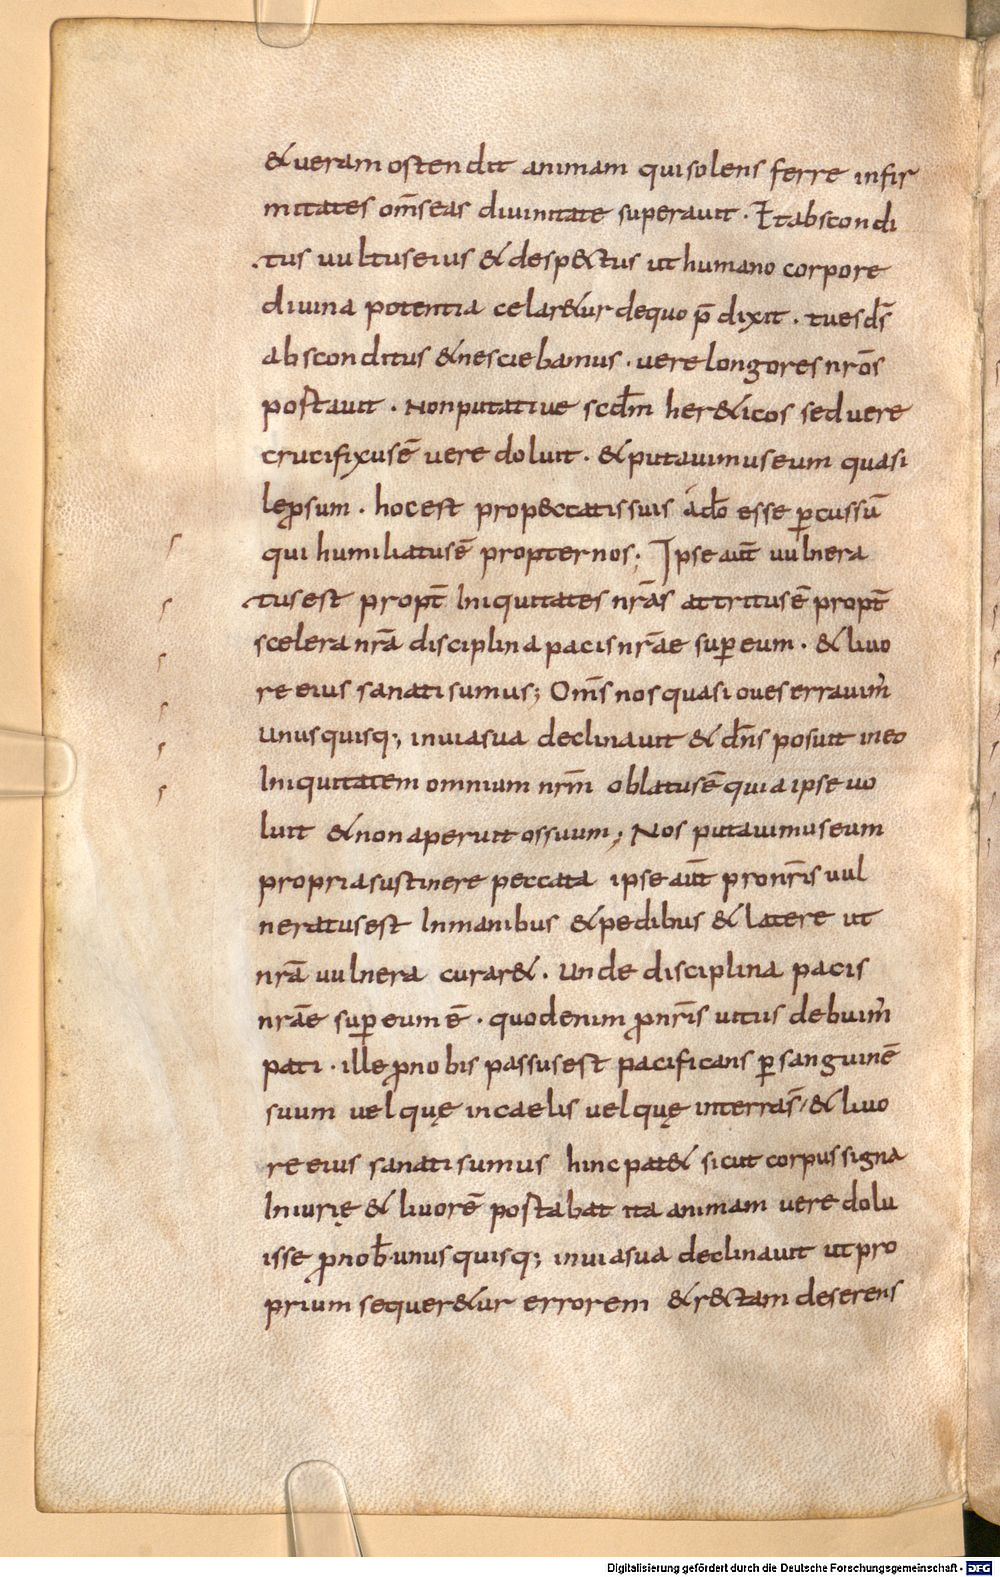 & ueram ostendit animam qui solens ferre infir
mitates om̄s eas diuinitate superauit. Et abscondi
tus uultus eius & desp&ctus ut humano corpore
diuina potentia celar&ur de quo p̄ dixit. tu es d̄s
absconditus & nesciebamus. uere longores nr̄os
postauit. Non putatiue scd̄m her&icos sed uere
crucifixus ē uere doluit. & putauimus eum quasi
lep̱sum. hoc est pro p&ccatis suis a d̄o esse ꝑcussū
qui humiliatus ē propter nos; Ipse aut̄ uulnera
tus est propt̄ Iniquitates nr̄as attritus ē propt̄
scelera nr̄a disciplina pacis nr̄ae suꝑ eum. & liuo
re eius sanati sumus; Om̄s nos quasi oues errauim̄
unusquisq; in uia sua declinauit & dn̄s posuit in eo
Iniquitatem omnium nr̄m oblatus ē quia ipse uo
luit & non aperuit os suum; Nos putauimus eum
propria sustinere peccata ipse aut̄ pro nr̄is uul
neratus est In manibus & pedibus & latere ut
nr̄a uulnera curar&. unde disciplina pacis
nr̄ae suꝑ eum ē. quod enim ꝓ nr̄is uitiis debuim̄
pati. ille ꝓ nobis passus est pacificans ꝑ sanguinē
suum uel quę in caelis uel quę in terra s̄ / & liuo
re eius sanati sumus hinc pat& sicut corpus signa
Iniurię & liuorē postabat ita animam uere dolu
isse ꝓ nob̄. unusquisq; in uia sua declinauit ut pro
prium sequer&ur errorem & r&ctam deserens
Digitalisierung gefördert durch die Deutsche Forschungsgemeinschaft - DFG